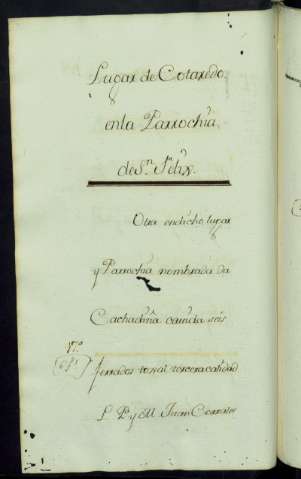 Lugar de Cotaredo
en la Parrochia
de Sn. Felix.
Otra en dicho lugar
y Parrochia nombrada da
Cachadiña caueda seis
ferrados tercera calidad
L. P. y M. Juan